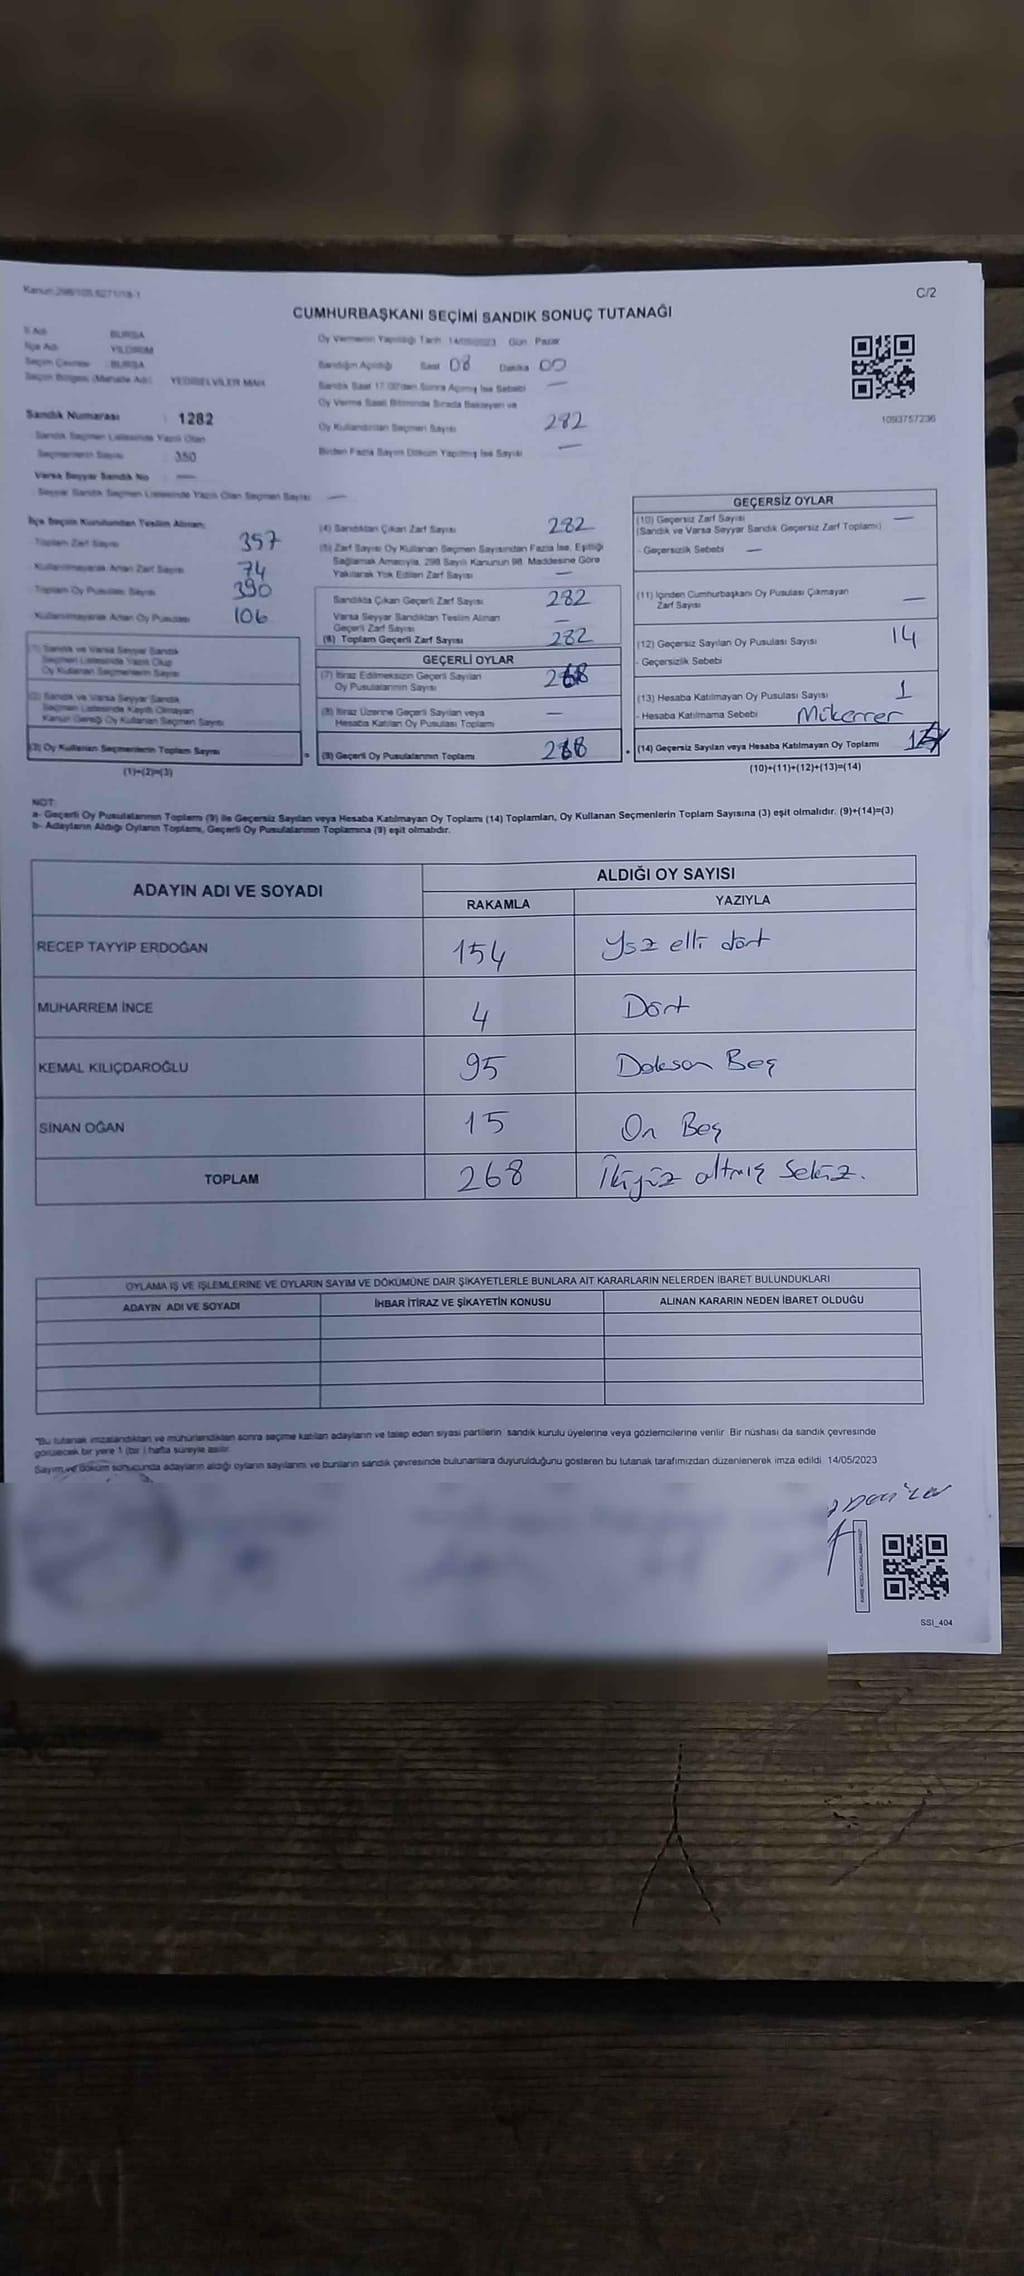 Kanun:298/105,6271/19-1
C/2
CUMHURBAŞKANI SEÇİMİ SANDIK SONUÇ TUTANAĞI
İl Adı BURSA
İlçe Adı YILDIRIM
Seçim Çevresi : BURSA
Seçim Bölgesi (Mahalle Adı)
Oy Vermenin Yapıldığı Tarih 14/05/2023 Gün Pazar
Sandığın Açıldığı Saat 08 Dakika 00
Sandık Saat 17:00'den Sonra Açılmış İse Sebebi —
Oy Verme Saati Bitiminde Sırada Bekleyen ve
Oy Kullandırılan Seçmen Sayısı 282
Birden Fazla Sayım Döküm Yapılmış İse Sayısı —
1093757236
Sandık Numarası : 1282
Sandık Seçmen Listesinde Yazılı Olan
Seçmenlerin Sayısı : 350
Varsa Seyyar Sandık No —
Seyyar Sandık Seçmen Listesinde Yazılı Olan Seçmen Sayısı —
İlçe Seçim Kurulundan Teslim Alınan;
Toplam Zarf Sayısı 357
Kullanılmayarak Artan Zarf Sayısı 74
Toplam Oy Pusulası Sayısı 390
Kullanılmayarak Artan Oy Pusulası 106
(1) Sandık ve Varsa Seyyar Sandık
Seçmen Listesinde Yazılı Olup
Oy Kullanan Seçmenlerin Sayısı
(2) Sandık ve Varsa Seyyar Sandık
Seçmen Listesinde Kayıtlı Olmayan
Kanun Gereği Oy Kullanan Seçmen Sayısı
(3) Oy Kullanan Seçmenlerin Toplam Sayısı
(1)+(2)=(3)
(4) Sandıktan Çıkan Zarf Sayısı 282
(5) Zarf Sayısı Oy Kullanan Seçmen Sayısından Fazla İse, Eşitliği
Sağlamak Amacıyla, 298 Sayılı Kanunun 98. Maddesine Göre
Yakılarak Yok Edilen Zarf Sayısı —
Sandıkta Çıkan Geçerli Zarf Sayısı 282
Varsa Seyyar Sandıktan Teslim Alınan
Geçerli Zarf Sayısı —
(6) Toplam Geçerli Zarf Sayısı 282
GEÇERLİ OYLAR
(7) İtiraz Edilmeksizin Geçerli Sayılan
Oy Pusulalarının Sayısı 268
(8) İtiraz Üzerine Geçerli Sayılan veya
Hesaba Katılan Oy Pusulası Toplamı —
(9) Geçerli Oy Pusulalarının Toplamı 268
GEÇERSİZ OYLAR
(10) Geçersiz Zarf Sayısı —
(Sandık ve Varsa Seyyar Sandık Geçersiz Zarf Toplamı)
- Geçersizlik Sebebi —
(11) İçinden Cumhurbaşkanı Oy Pusulası Çıkmayan
Zarf Sayısı —
(12) Geçersiz Sayılan Oy Pusulası Sayısı 14
- Geçersizlik Sebebi
(13) Hesaba Katılmayan Oy Pusulası Sayısı 1
- Hesaba Katılmama Sebebi Mükerrer
(14) Geçersiz Sayılan veya Hesaba Katılmayan Oy Toplamı
(10)+(11)+(12)+(13)=(14)
NOT:
a- Geçerli Oy Pusulalarının Toplamı (9) ile Geçersiz Sayılan veya Hesaba Katılmayan Oy Toplamı (14) Toplamları, Oy Kullanan Seçmenlerin Toplam Sayısına (3) eşit olmalıdır. (9)+(14)=(3)
b- Adayların Aldığı Oyların Toplamı, Geçerli Oy Pusulalarının Toplamına (9) eşit olmalıdır.
ADAYIN ADI VE SOYADI
ALDIĞI OY SAYISI
RAKAMLA YAZIYLA
RECEP TAYYİP ERDOĞAN 154 Yüz elli dört
MUHARREM İNCE 4 Dört
KEMAL KILIÇDAROĞLU 95 Doksan Beş
SİNAN OĞAN 15 On Beş
TOPLAM 268 İkiyüz altmış Sekiz.
OYLAMA İŞ VE İŞLEMLERİNE VE OYLARIN SAYIM VE DÖKÜMÜNE DAİR ŞİKAYETLERLE BUNLARA AİT KARARLARIN NELERDEN İBARET BULUNDUKLARI
ADAYIN ADI VE SOYADI İHBAR İTİRAZ VE ŞİKAYETİN KONUSU ALINAN KARARIN NEDEN İBARET OLDUĞU
"Bu tutanak imzalandıktan ve mühürlendikten sonra seçime katılan adayların ve talep eden siyasi partilerin sandık kurulu üyelerine veya gözlemcilerine verilir. Bir nüshası da sandık çevresinde
görülecek bir yere 1 (bir ) hafta süreyle asılır.
Sayım ve döküm sonucunda adayların aldığı oyların sayılarını ve bunların sandık çevresinde bulunanlara duyurulduğunu gösteren bu tutanak tarafımızdan düzenlenerek imza edildi. 14/05/2023
SSI_404